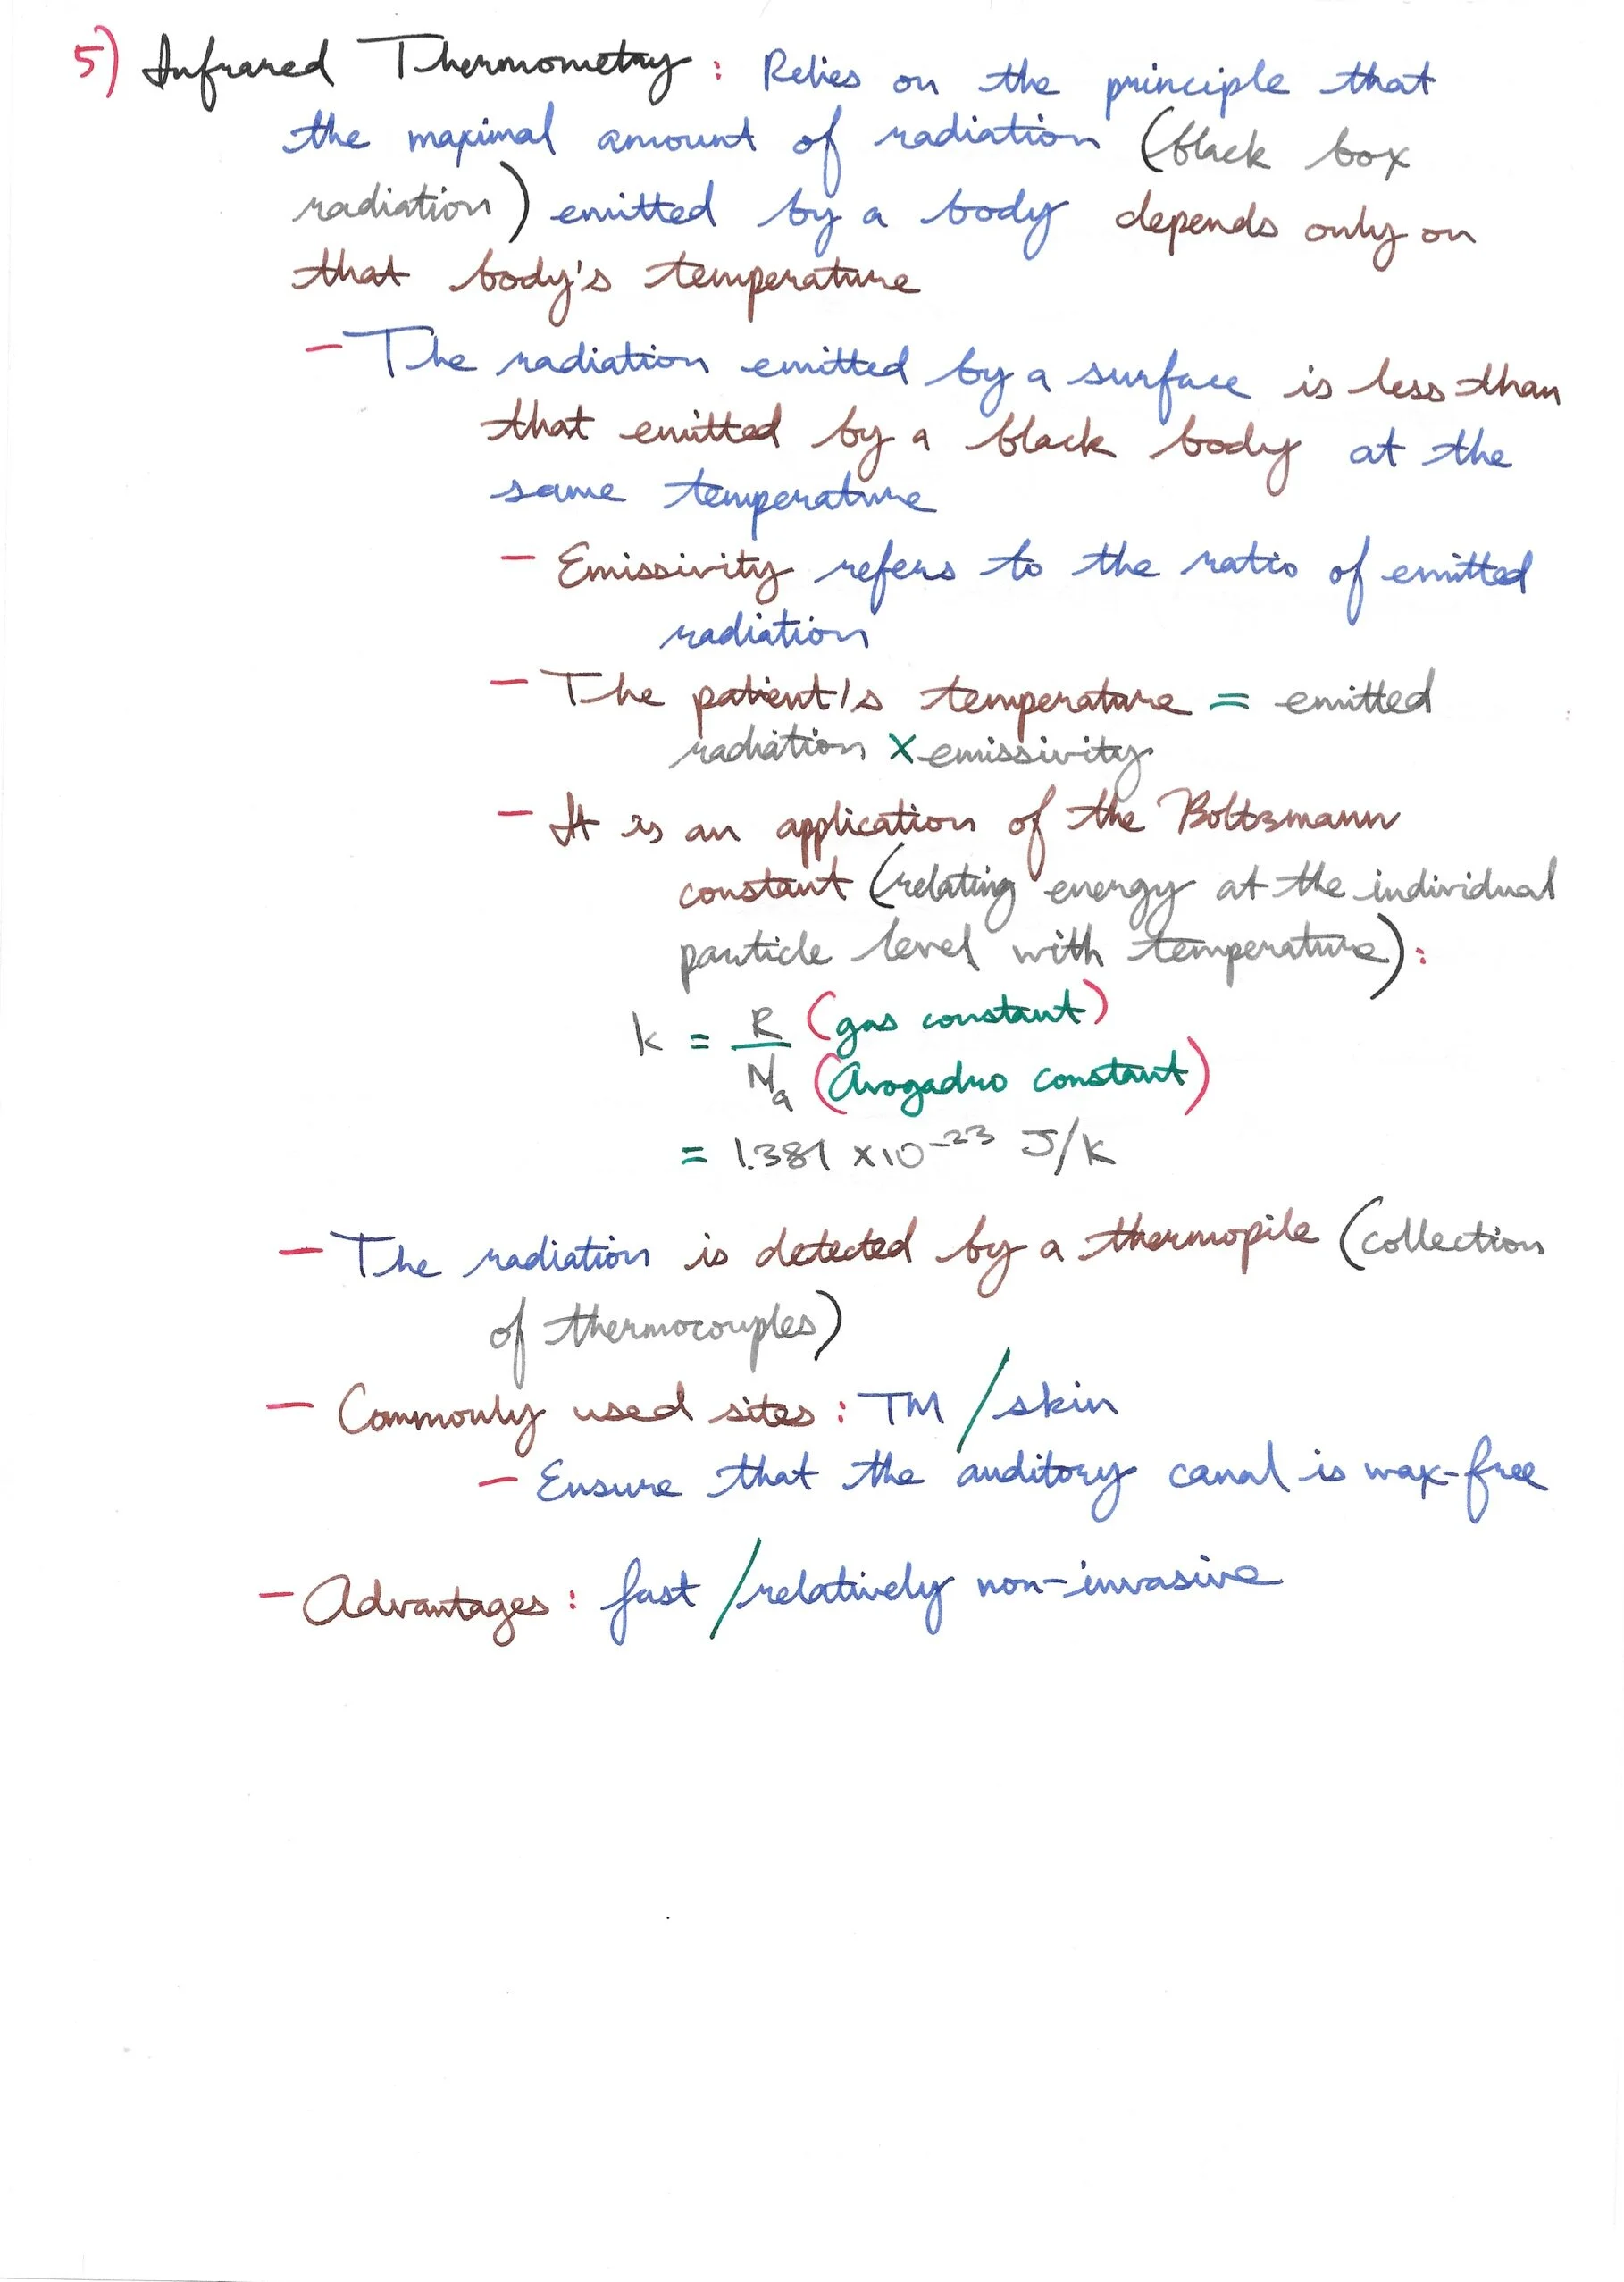 5) Infrared Thermometry : Relies on the principle that
the maximal amount of radiation (black box
radiation) emitted by a body depends only on
that body's temperature
- The radiation emitted by a surface is less than
that emitted by a black body at the
same temperature
- Emissivity refers to the ratio of emitted
radiation
- The patient's temperature = emitted
radiation × emissivity
- It is an application of the Boltzmann
constant (relating energy at the individual
particle level with temperature) :
k = R (gas constant)
Na (Avogadro constant)
= 1.381 × 10⁻²³ J/K
- The radiation is detected by a thermopile (collection
of thermocouples)
- Commonly used sites : TM / skin
- Ensure that the auditory canal is wax-free
- Advantages : fast / relatively non-invasive